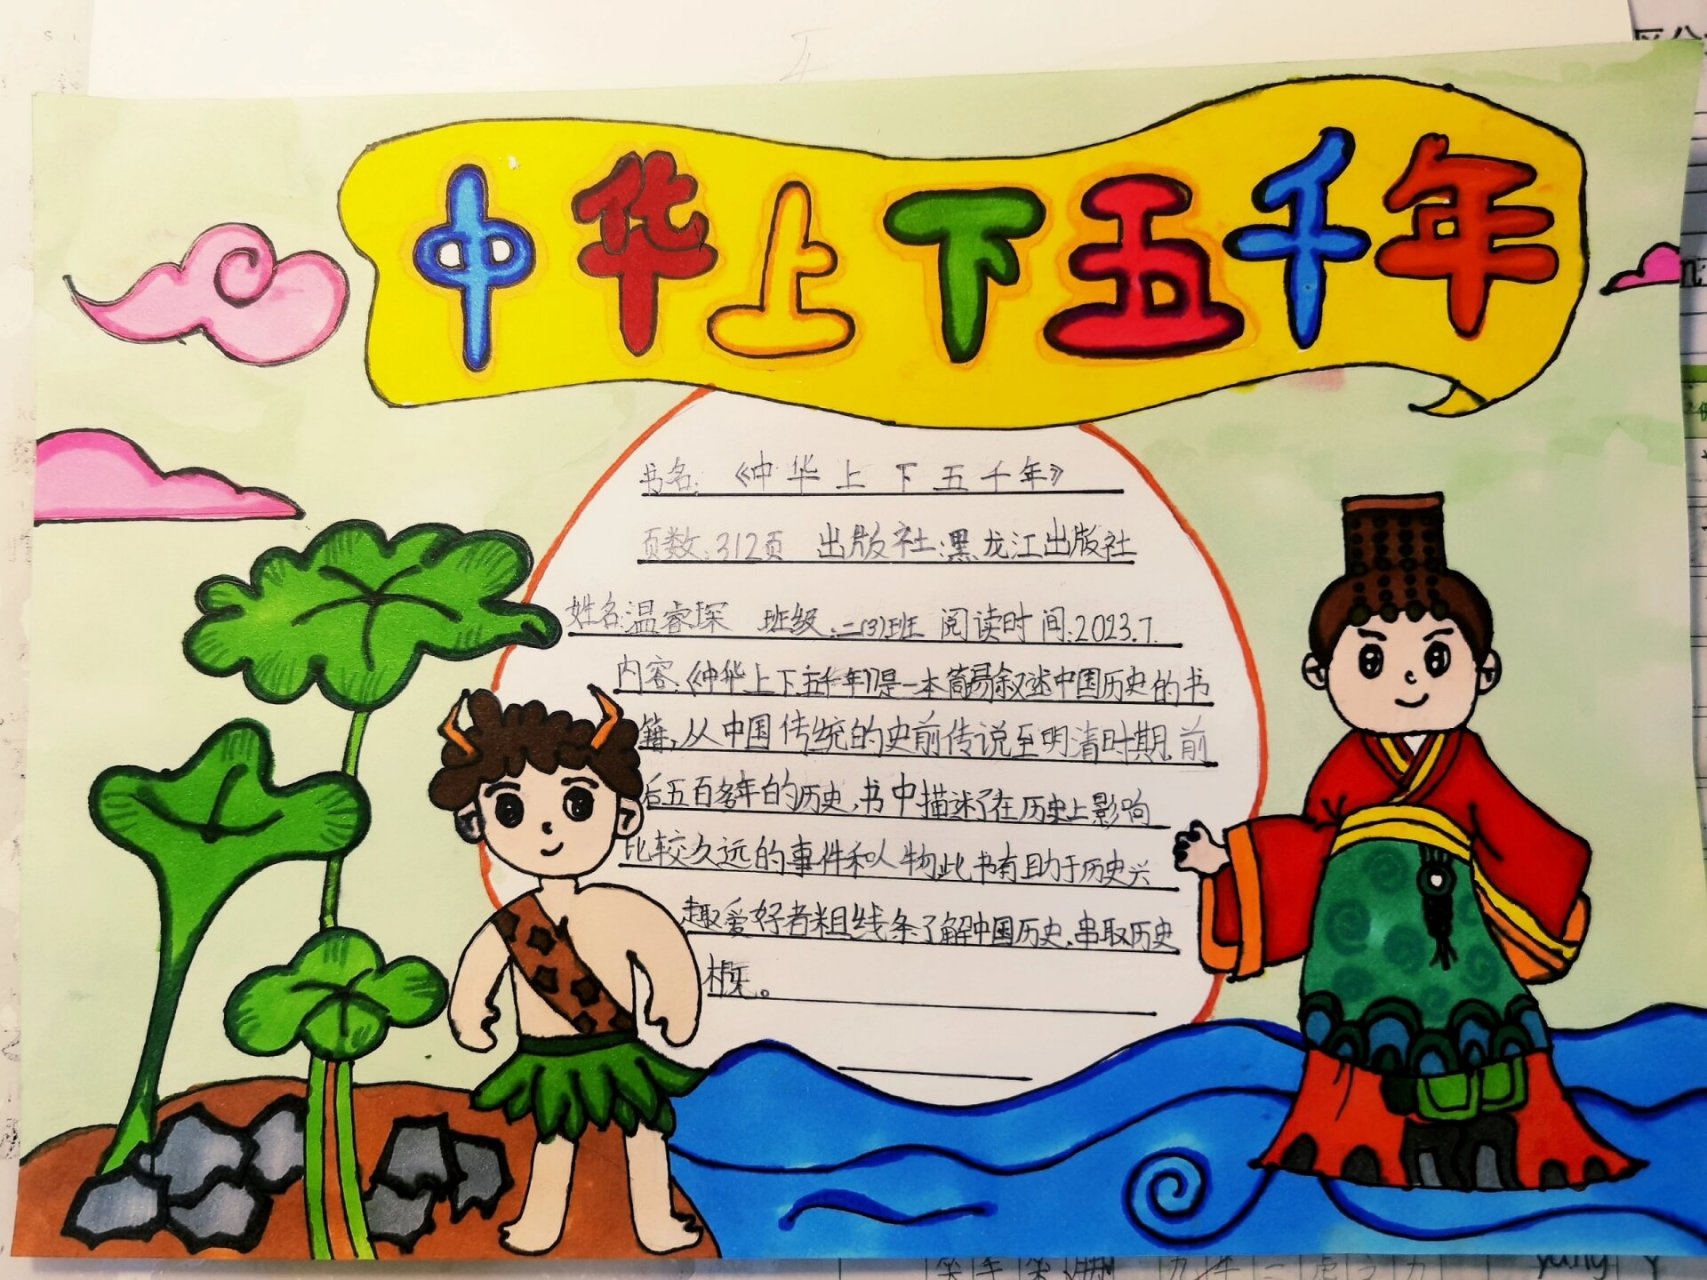 中华上下五千年
书名:《中华上下五千年》
页数:312页 出版社:黑龙江出版社
姓名:温睿琛 班级:二(3)班 阅读时间:2023.7.
内容:《中华上下五千年》是一本简易叙述中国历史的书
籍,从中国传统的史前传说至明清时期,前
后五百多年的历史,书中描述了在历史上影响
比较久远的事件和人物此书有助于历史兴
趣爱好者粗线条了解中国历史,串取历史
概。